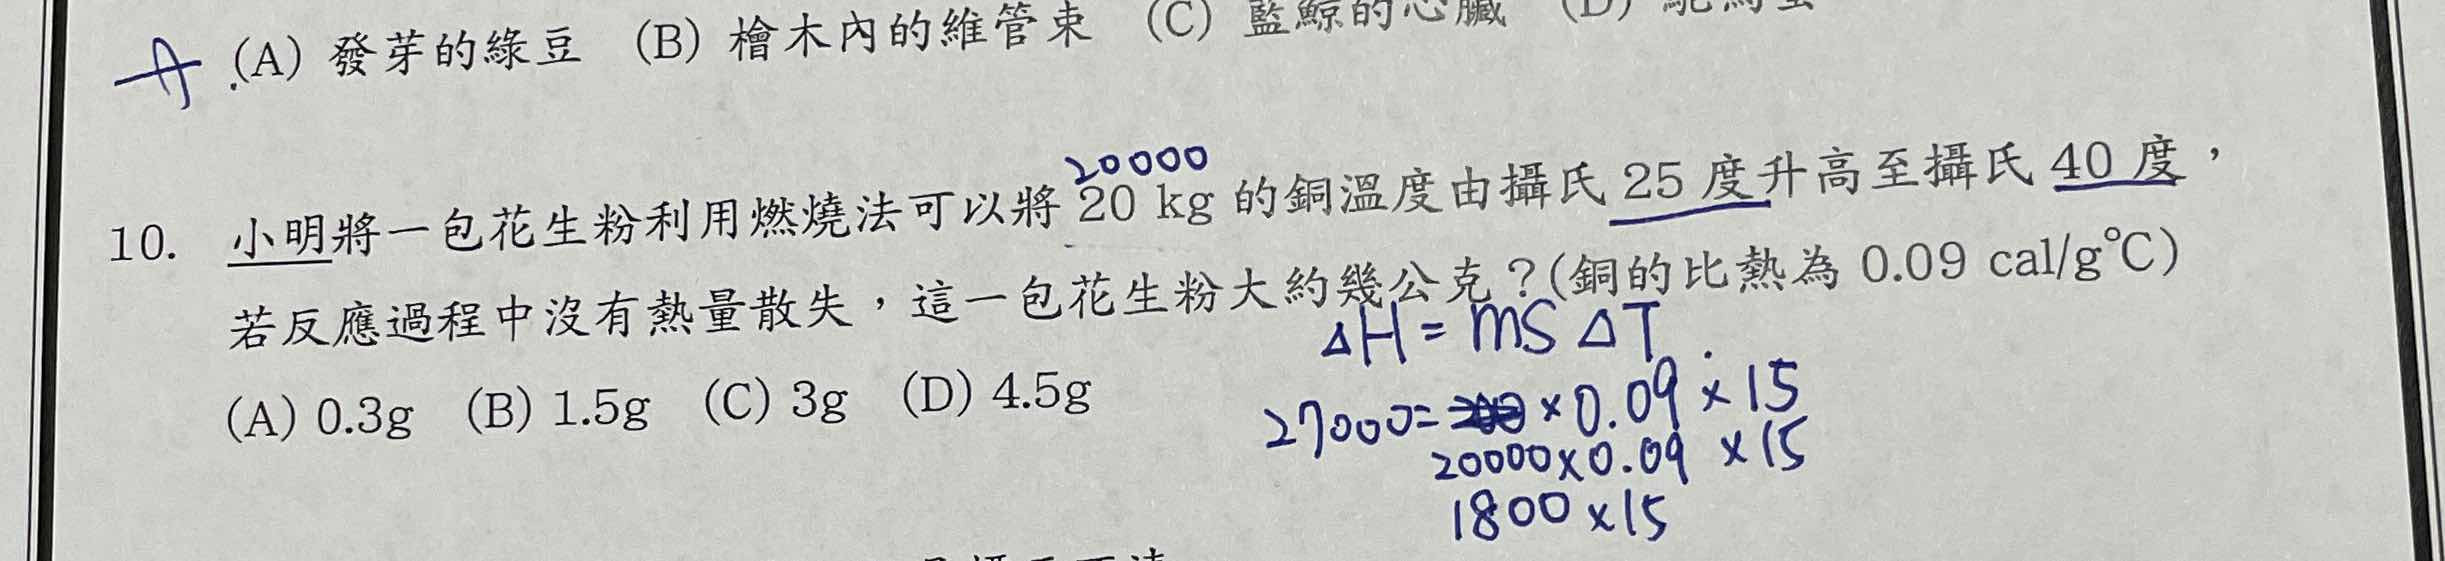 (A) 發芽的綠豆 (B) 檜木內的維管束 (C) 藍鯨的心臟 (D)
20000
10. 小明將一包花生粉利用燃燒法可以將 20 kg 的銅溫度由攝氏 25 度升高至攝氏 40 度，
若反應過程中沒有熱量散失，這一包花生粉大約幾公克？(銅的比熱為 0.09 cal/g°C)
ΔH = mS ΔT
(A) 0.3g (B) 1.5g (C) 3g (D) 4.5g
27000= × 0.09 × 15
20000×0.09 ×15
1800×15